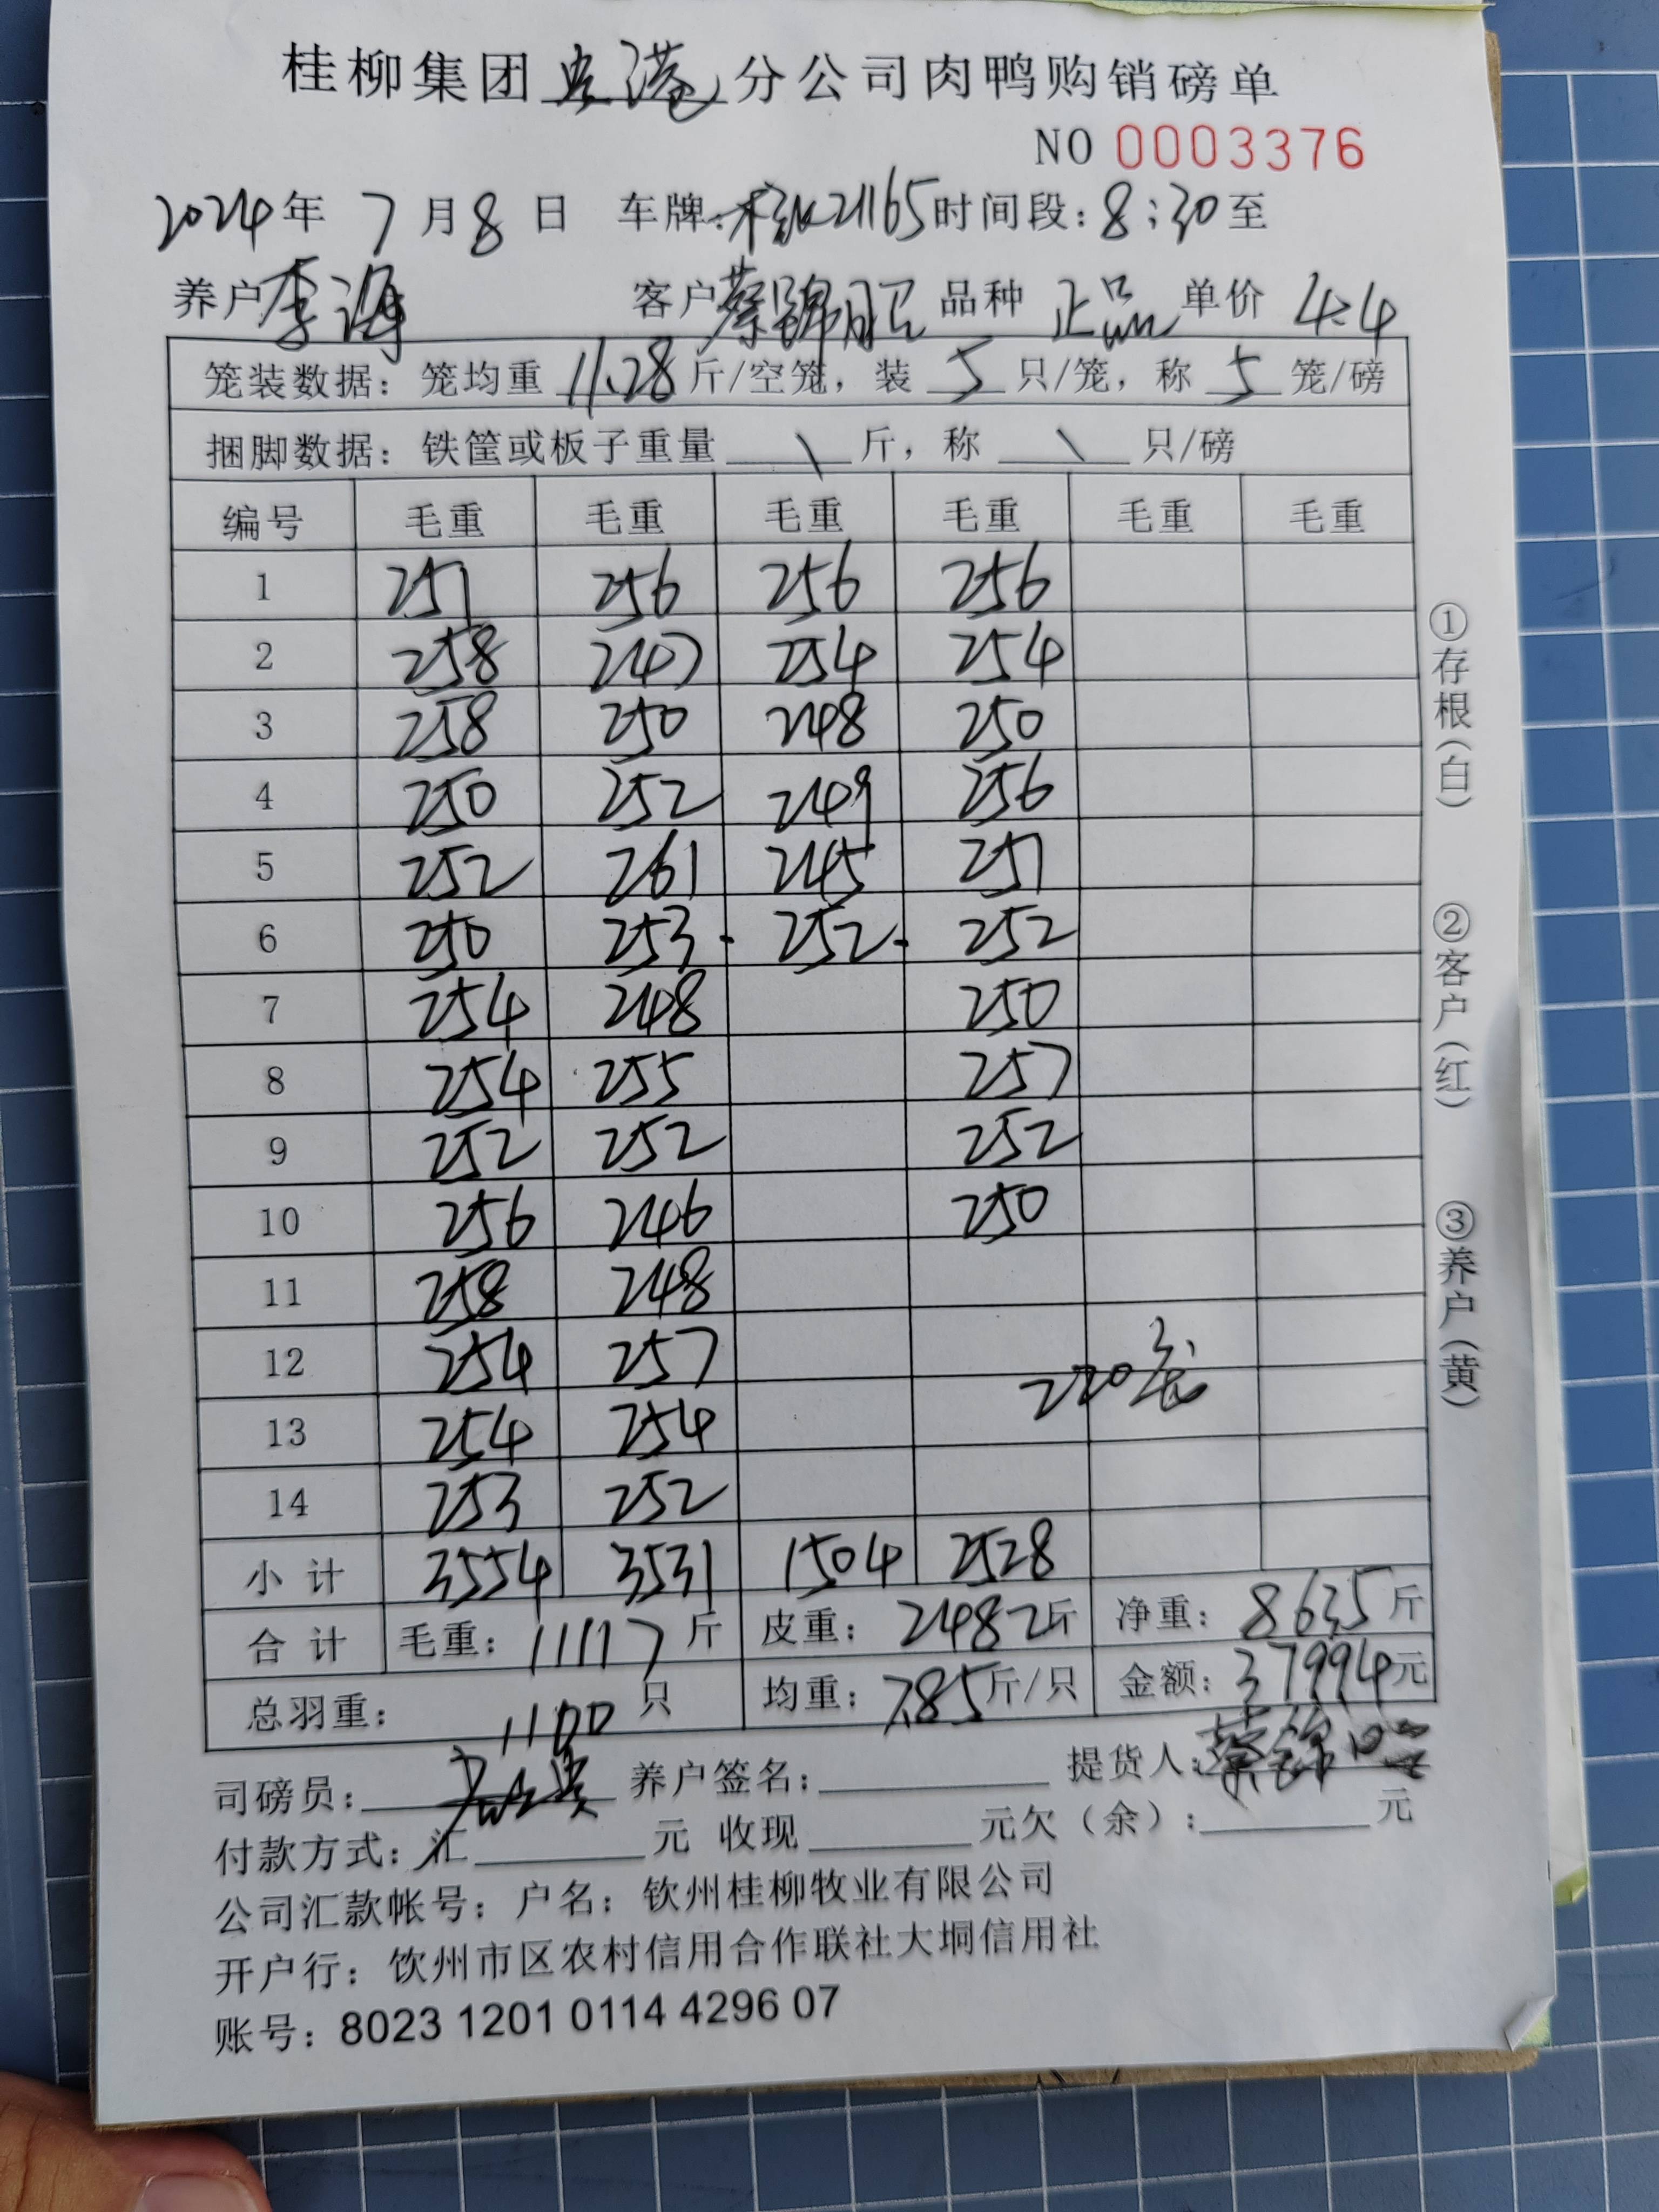 桂柳集团贵港分公司肉鸭购销磅单
NO 0003376
2024年 7月8日 车牌:桂K21165时间段:8:30至
养户李海 客户蔡锦昭 品种 正品 单价 4.4
笼装数据:笼均重 11.28 斤/空笼,装 5 只/笼,称 5 笼/磅
捆脚数据:铁筐或板子重量 \ 斤,称 \ 只/磅
编号 毛重 毛重 毛重 毛重 毛重 毛重
1 251 256 256 256
2 258 247 254 254
3 258 250 248 250
4 250 252 249 256
5 252 261 245 251
6 250 253 252 252
7 254 248 250
8 254 255 257
9 252 252 252
10 256 246 250
11 258 248
12 254 257
220笼
13 254 254
14 253 252
小计 3554 3531 1504 2528
合计 毛重:11117斤 皮重:2482斤 净重:8635斤
总羽重: 1100 只 均重:7.85斤/只 金额:37994元
司磅员: 养户签名: 提货人:蔡锦昭
付款方式:汇 元 收现 元欠(余): 元
公司汇款帐号:户名:钦州桂柳牧业有限公司
开户行:钦州市区农村信用合作联社大垌信用社
账号:8023 1201 0114 4296 07
①存根(白) ②客户(红) ③养户(黄)